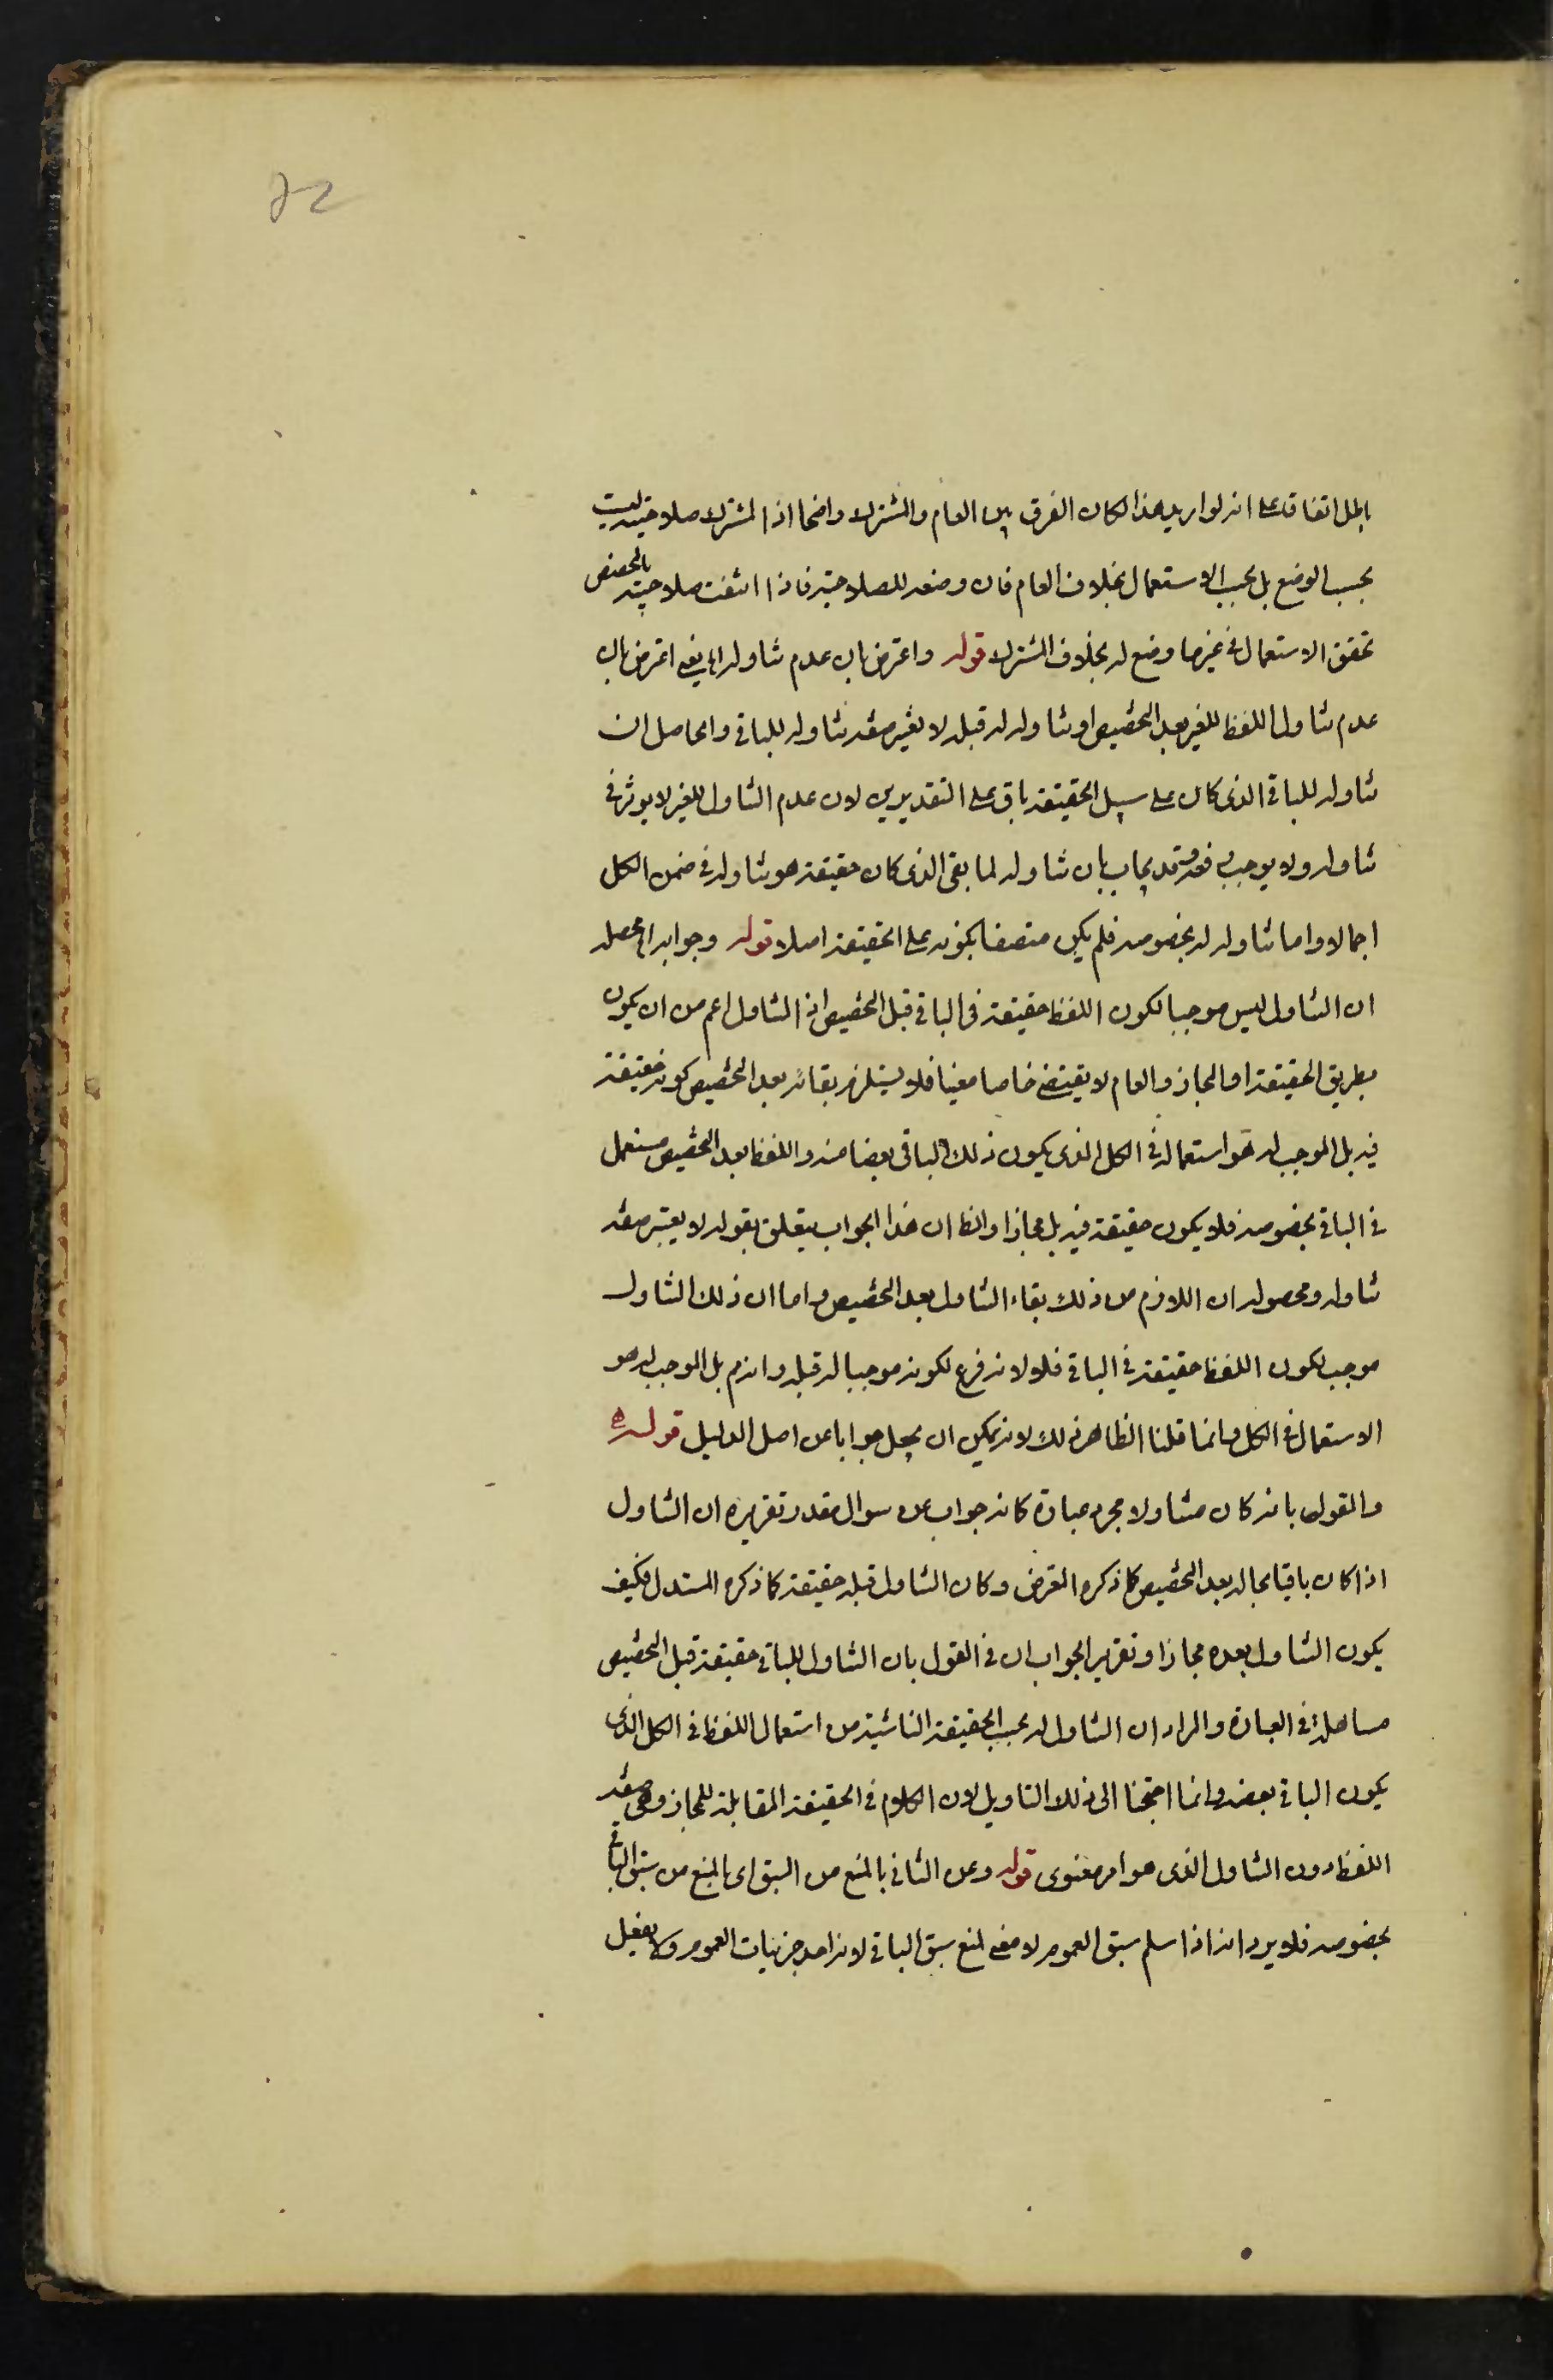 باطل اتفاقا على انه لو اريد هذا لكان الفرق بين العام والمشترك واضحا اذ المشترك صلاحيته ليست
بحسب الوضع بل بحسب الاستعمال بخلاف العام فان وضعه للصلاحية فاذا انتفت صلاحيته بالتخصيص
تحقق الاستعمال في غير ما وضع له بخلاف المشترك قوله واعترض بان عدم تناوله اه يعني اعترض بان
عدم تناول اللفظ للغير بعد التخصيص او تناوله له قبله لا يغير صفة تناوله للباقي والحاصل ان
تناوله للباقي الذي كان على سبيل الحقيقة باق على التقديرين لان عدم التناول للغير لا يوثر في
تناوله ولا يوجب رفعه وقد يجاب بان تناوله لما بقى الذي كان حقيقة هو تناوله في ضمن الكل
اجمالا واما تناوله له بخصوصه فلم يكن متصفا بكونه على الحقيقة اصلا قوله وجوابه اه محصله
ان التناول ليس موجبا لكون اللفظ حقيقة في الباقي قبل التخصيص اذ التناول اعم من ان يكون
بطريق الحقيقة او المجاز والعام لا يقتضي خاصا معينا فلا يستلزم بقائه بعد التخصيص كونه حقيقة
فيه بل الموجب له هو استعماله في الكل الذي يكون ذلك الباقي بعضا منه واللفظ بعد التخصيص مستعمل
في الباقي بخصوصه فلا يكون حقيقة فيه بل مجازا والظ ان هذا الجواب يتعلق بقوله لا يغير صفة
تناوله ومحصوله ان اللازم من ذلك بقاء التناول بعد التخصيص واما ان ذلك التناول
موجب لكون اللفظ حقيقة في الباقي فلا لانه فرع لكونه موجبا له قبله وانه م بل الموجب له هو
الاستعمال في الكل وانما قلنا الظاهر ذلك لانه يمكن ان يجعل جوابا عن اصل الدليل قوله
والقول بانه كان متناولا مجرد عبارة كانه جواب عن سوال مقدر تقريره ان التناول
اذا كان باقيا بحاله بعد التخصيص كما ذكره المعترض وكان التناول قبله حقيقة كما ذكره المستدل فكيف
يكون التناول بعده مجازا وتقرير الجواب ان في القول بان التناول للباقي حقيقة قبل التخصيص
مساهلة في العبارة والمراد ان التناول له بحسب الحقيقة الناشية من استعمال اللفظ في الكل الذي
يكون الباقي بعضه وانما احتجنا الى ذلك التاويل لان الكلام في الحقيقة المقابلة للمجاز وهي صفة
اللفظ دون التناول الذي هو امر معنوى قوله وعن الثاني بالمنع من السبق اى بالمنع من سبق الباقي
بخصوصه فلا يرد انه اذا سلم سبق العموم لا معنى لمنع سبق الباقي لانه احد جزئيات العموم